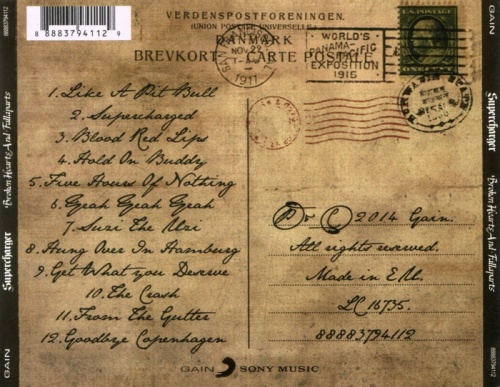 GAIN
88883794112
Supercharger
Broken Hearts And Fallaparts
GAIN
8 88837 94112 9
VERDENSPOSTFORENINGEN.
(UNION POSTALE UNIVERSELLE.)
DANMARK
BREVKORT - CARTE POSTALE
NOV 22
1911
WORLD'S
PANAMA-PACIFIC
EXPOSITION
1915
U.S. POSTAGE
1. Like A Pit Bull
2. Supercharged
3. Blood Red Lips
4. Hold On Buddy
5. Five Hours Of Nothing
6. Yeah Yeah Yeah
7. Suzi The Uzi
8. Hung Over In Hamburg
9. Get What you Deserve
10. The Crash
11. From The Gutter
12. Goodbye Copenhagen
P & C 2014 Gain.
All rights reserved.
Made in E.U.
LC 16735.
88883794112
GAIN SONY MUSIC
GAIN
Supercharger
Broken Hearts And Fallaparts
88883794112
GAIN